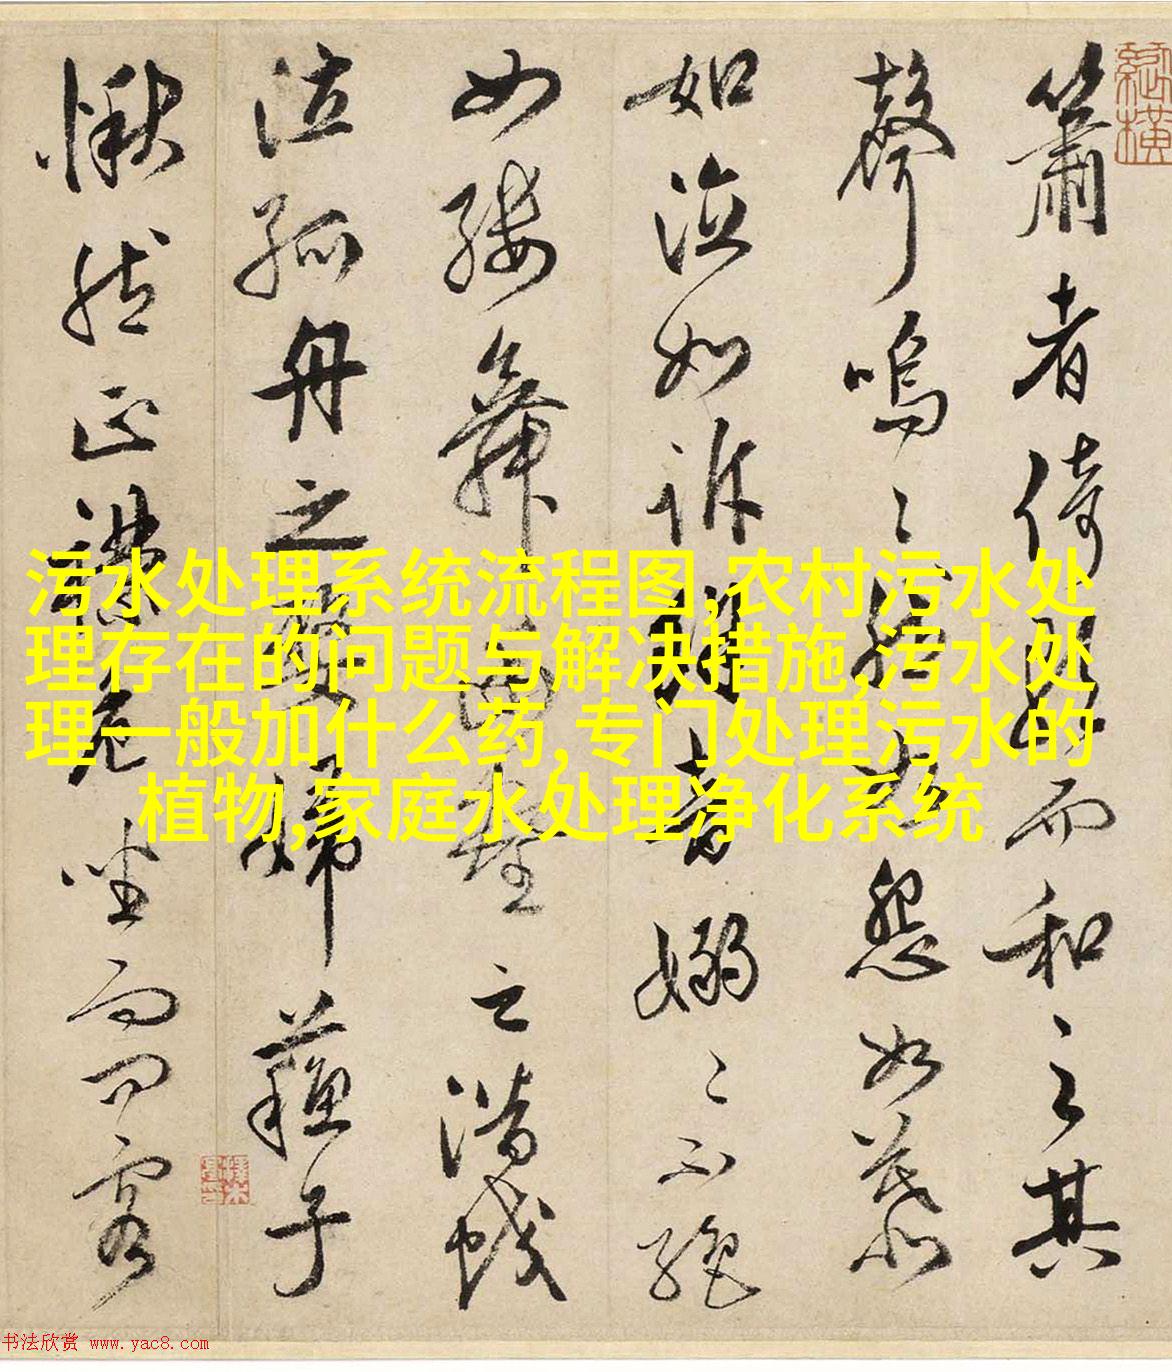 簫者倚歌而和之其
聲嗚〻然如怨如慕
如泣如訴餘音嫋〻不絕
如縷舞幽壑之潛蛟
泣孤舟之嫠婦蘇子
愀然正襟危坐而問客
污水处理系统流程图,农村污水处
理存在的问题与解决措施,污水处
理一般加什么药,专门处理污水的
植物,家庭水处理净化系统
书法欣赏 www.yac8.com